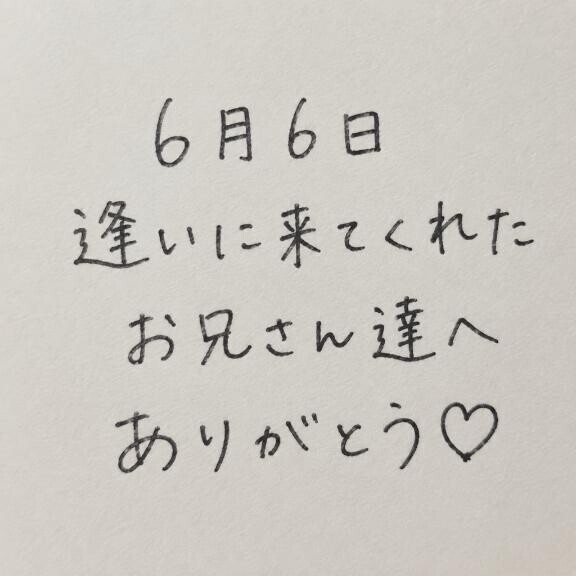 6月6日
逢いに来てくれた
お兄さん達へ
ありがとう♡